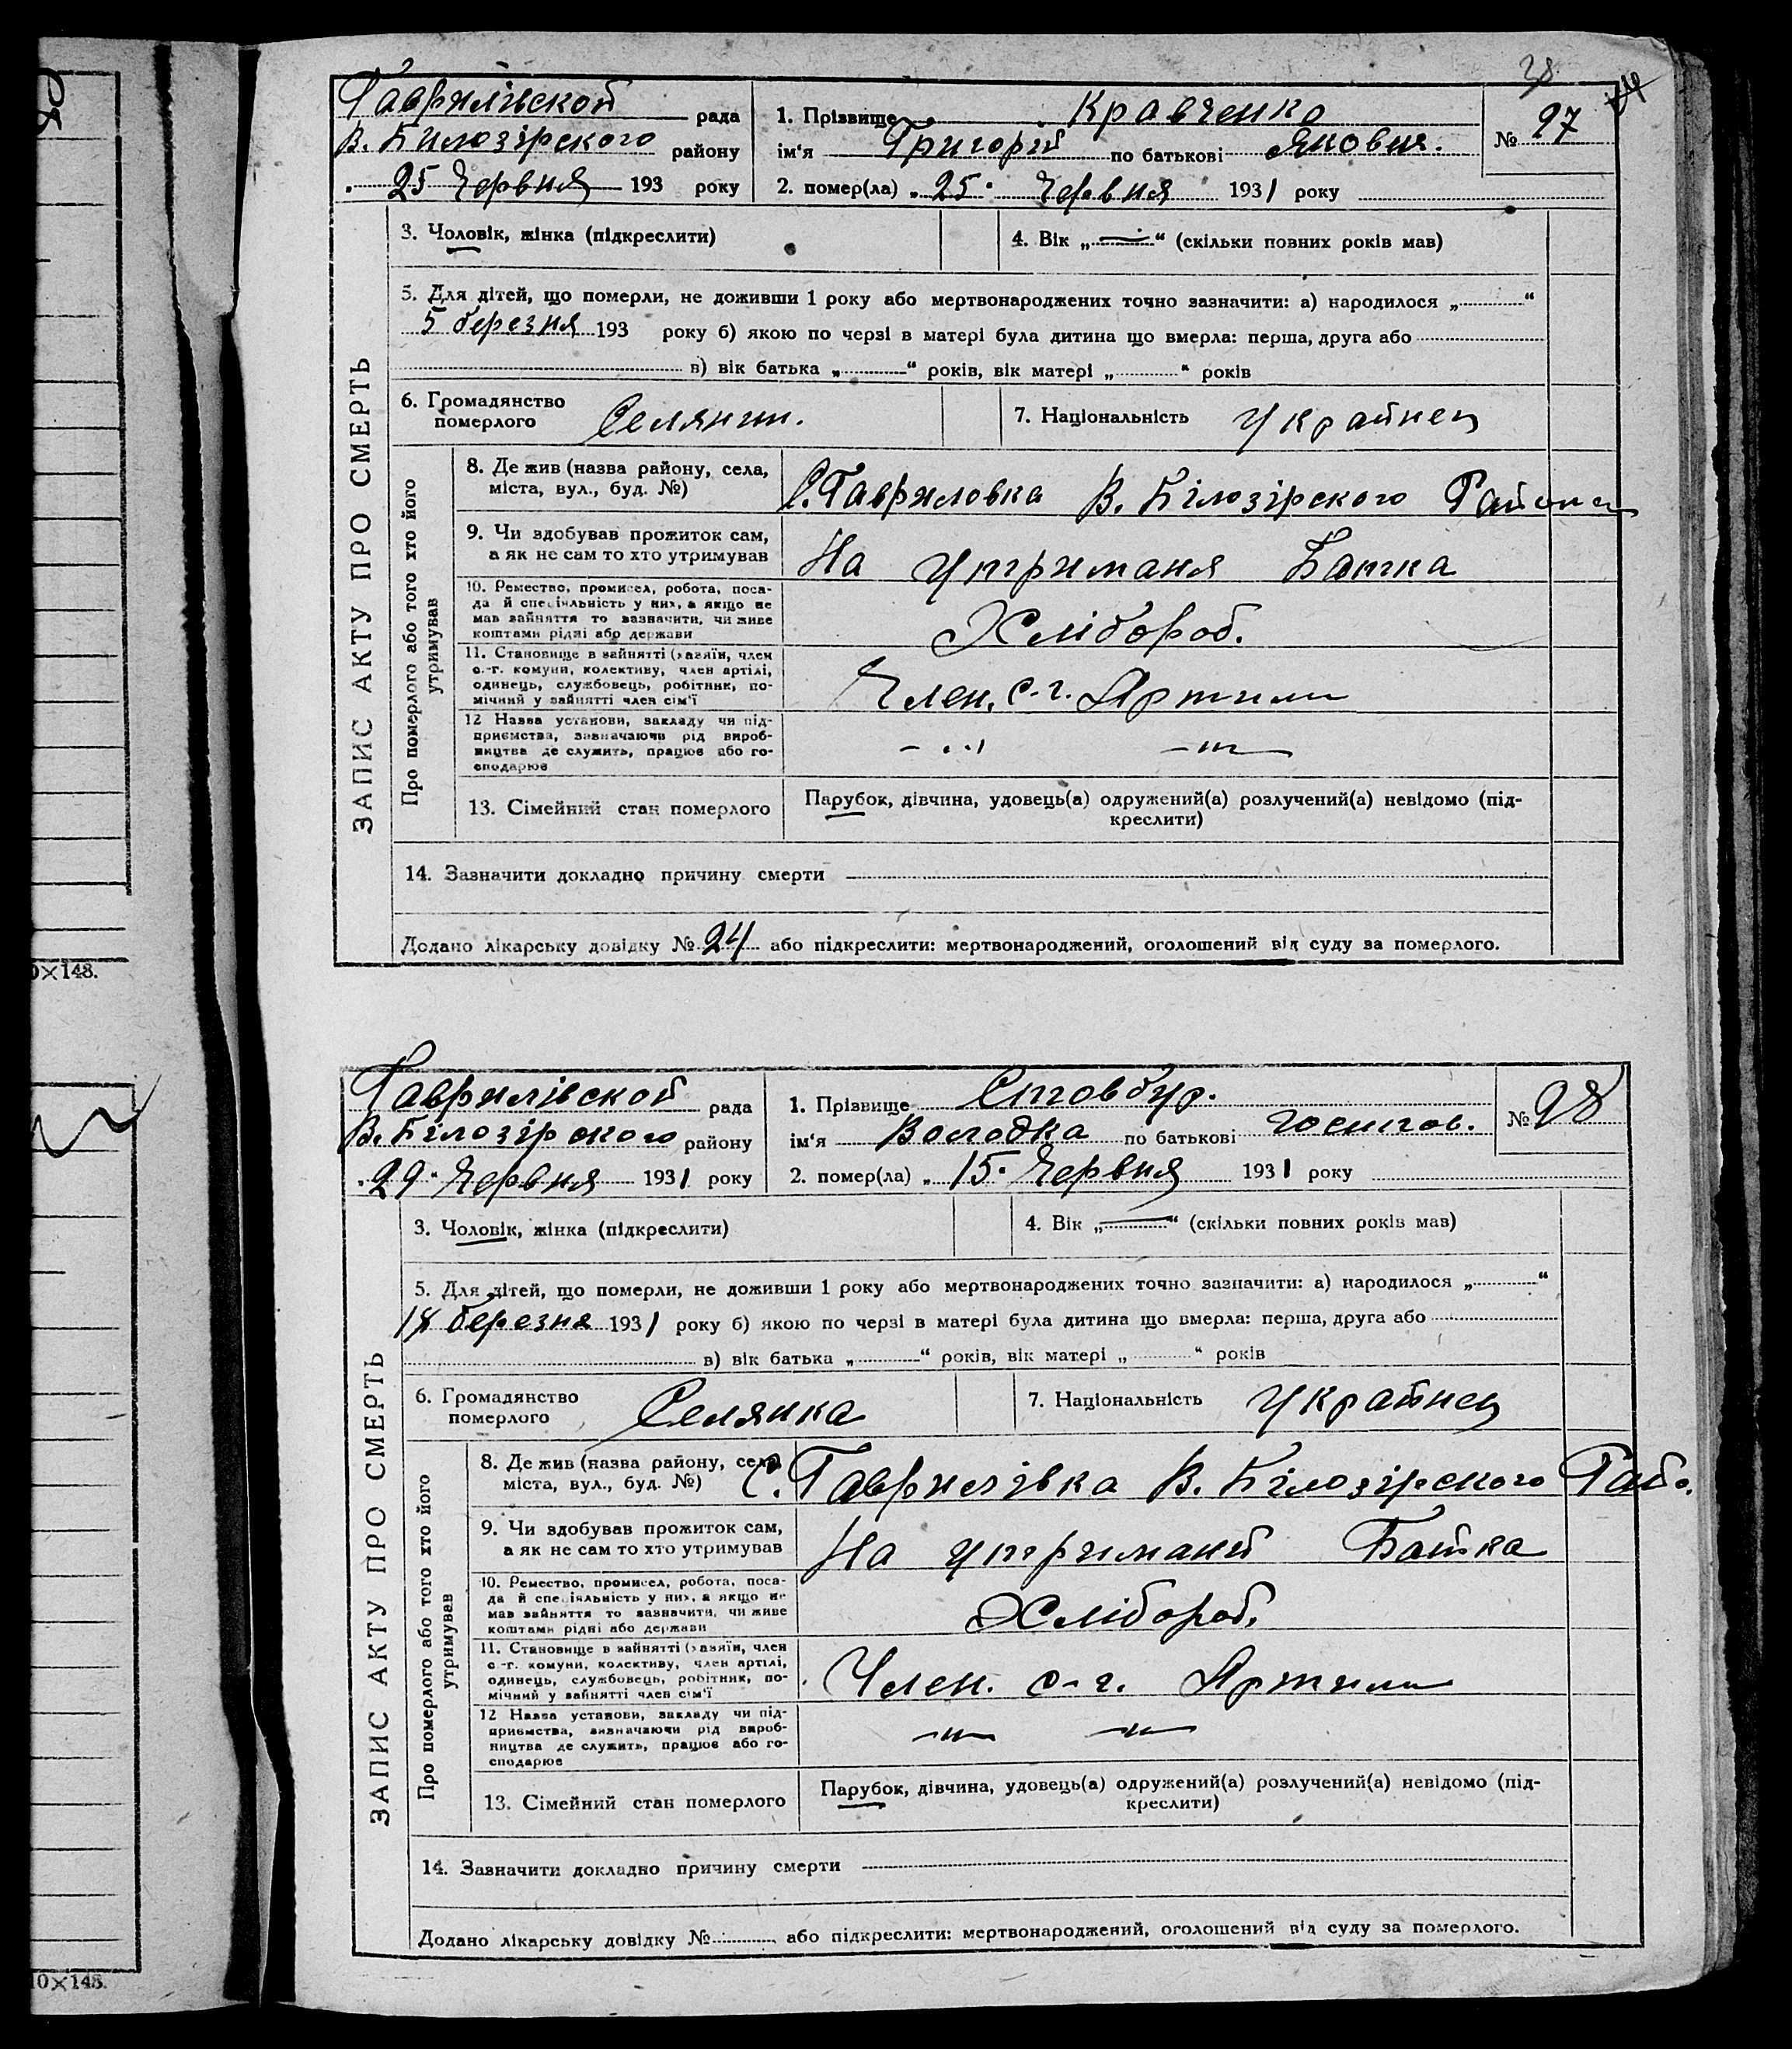 28
Гаврилівской рада
В. Билозірского району
25 Червня 193 року
1. Прізвище Кравченко
ім'я Григорій по батькові Якович.
2. помер(ла) „25" Червня 1931 року
№ 27
ЗАПИС АКТУ ПРО СМЕРТЬ
3. Чоловік, жінка (підкреслити)
4. Вік „—" (скільки повних років мав)
5. Для дітей, що померли, не доживши 1 року або мертвонароджених точно зазначити: а) народилося „ "
5 березня 193 року б) якою по черзі в матері була дитина що вмерла: перша, друга або
в) вік батька „ " років, вік матері „ " років
6. Громадянство
померлого Селянин.
7. Національність Украйнец
Про померлого або того хто його
утримував
8. Де жив (назва району, села,
міста, вул., буд. №)
С. Гавриловка В. Білозірского Району
9. Чи здобував прожиток сам,
а як не сам то хто утримував
На утриманя Батка
10. Ремество, промисел, робота, поса-
да й спеціяльність у них, а якщо не
мав зайняття то зазначити, чи живе
коштами рідні або держави
Хлібороб.
11. Становище в зайнятті (хазяїн, член
с.-г. комуни, колективу, член артілі,
одинець, службовець, робітник, по-
мічний у зайнятті член сім'ї
Член. с-г. Артили
12 Назва установи, закладу чи під-
приємства, зазначаючи рід вироб-
ництва де служить, працює або го-
сподарює
—"— —"—
13. Сімейний стан померлого
Парубок, дівчина, удовець(а) одружений(а) розлучений(а) невідомо (під-
креслити)
14. Зазначити докладно причину смерти
Додано лікарську довідку № 24 або підкреслити: мертвонароджений, оголошений від суду за померлого.
0×148.
Гаврилівской рада
В. Білозірского району
„29" Червня 1931 року
1. Прізвище Стовбур.
ім'я Володка по батькові
2. помер(ла) „15" Червня 1931 року
№ 28
ЗАПИС АКТУ ПРО СМЕРТЬ
3. Чоловік, жінка (підкреслити)
4. Вік „—" (скільки повних років мав)
5. Для дітей, що померли, не доживши 1 року або мертвонароджених точно зазначити: а) народилося „ "
18 березня 1931 року б) якою по черзі в матері була дитина що вмерла: перша, друга або
в) вік батька „ " років, вік матері „ " років
6. Громадянство
померлого Селянка
7. Національність Украйнец
Про померлого або того хто його
утримував
8. Де жив (назва району, села,
міста, вул., буд. №)
С. Гаврилівка В. Білозірского Райо.
9. Чи здобував прожиток сам,
а як не сам то хто утримував
На утриманй Батка
10. Ремество, промисел, робота, поса-
да й спеціяльність у них, а якщо не
мав зайняття то зазначити, чи живе
коштами рідні або держави
Хлібороб.
11. Становище в зайнятті (хазяїн, член
с.-г. комуни, колективу, член артілі,
одинець, службовець, робітник, по-
мічний у зайнятті член сім'ї
Член. с-г. Артили
12 Назва установи, закладу чи під-
приємства, зазначаючи рід вироб-
ництва де служить, працює або го-
сподарює
—"— —"—
13. Сімейний стан померлого
Парубок, дівчина, удовець(а) одружений(а) розлучений(а) невідомо (під-
креслити)
14. Зазначити докладно причину смерти
Додано лікарську довідку № або підкреслити: мертвонароджений, оголошений від суду за померлого.
10×148.